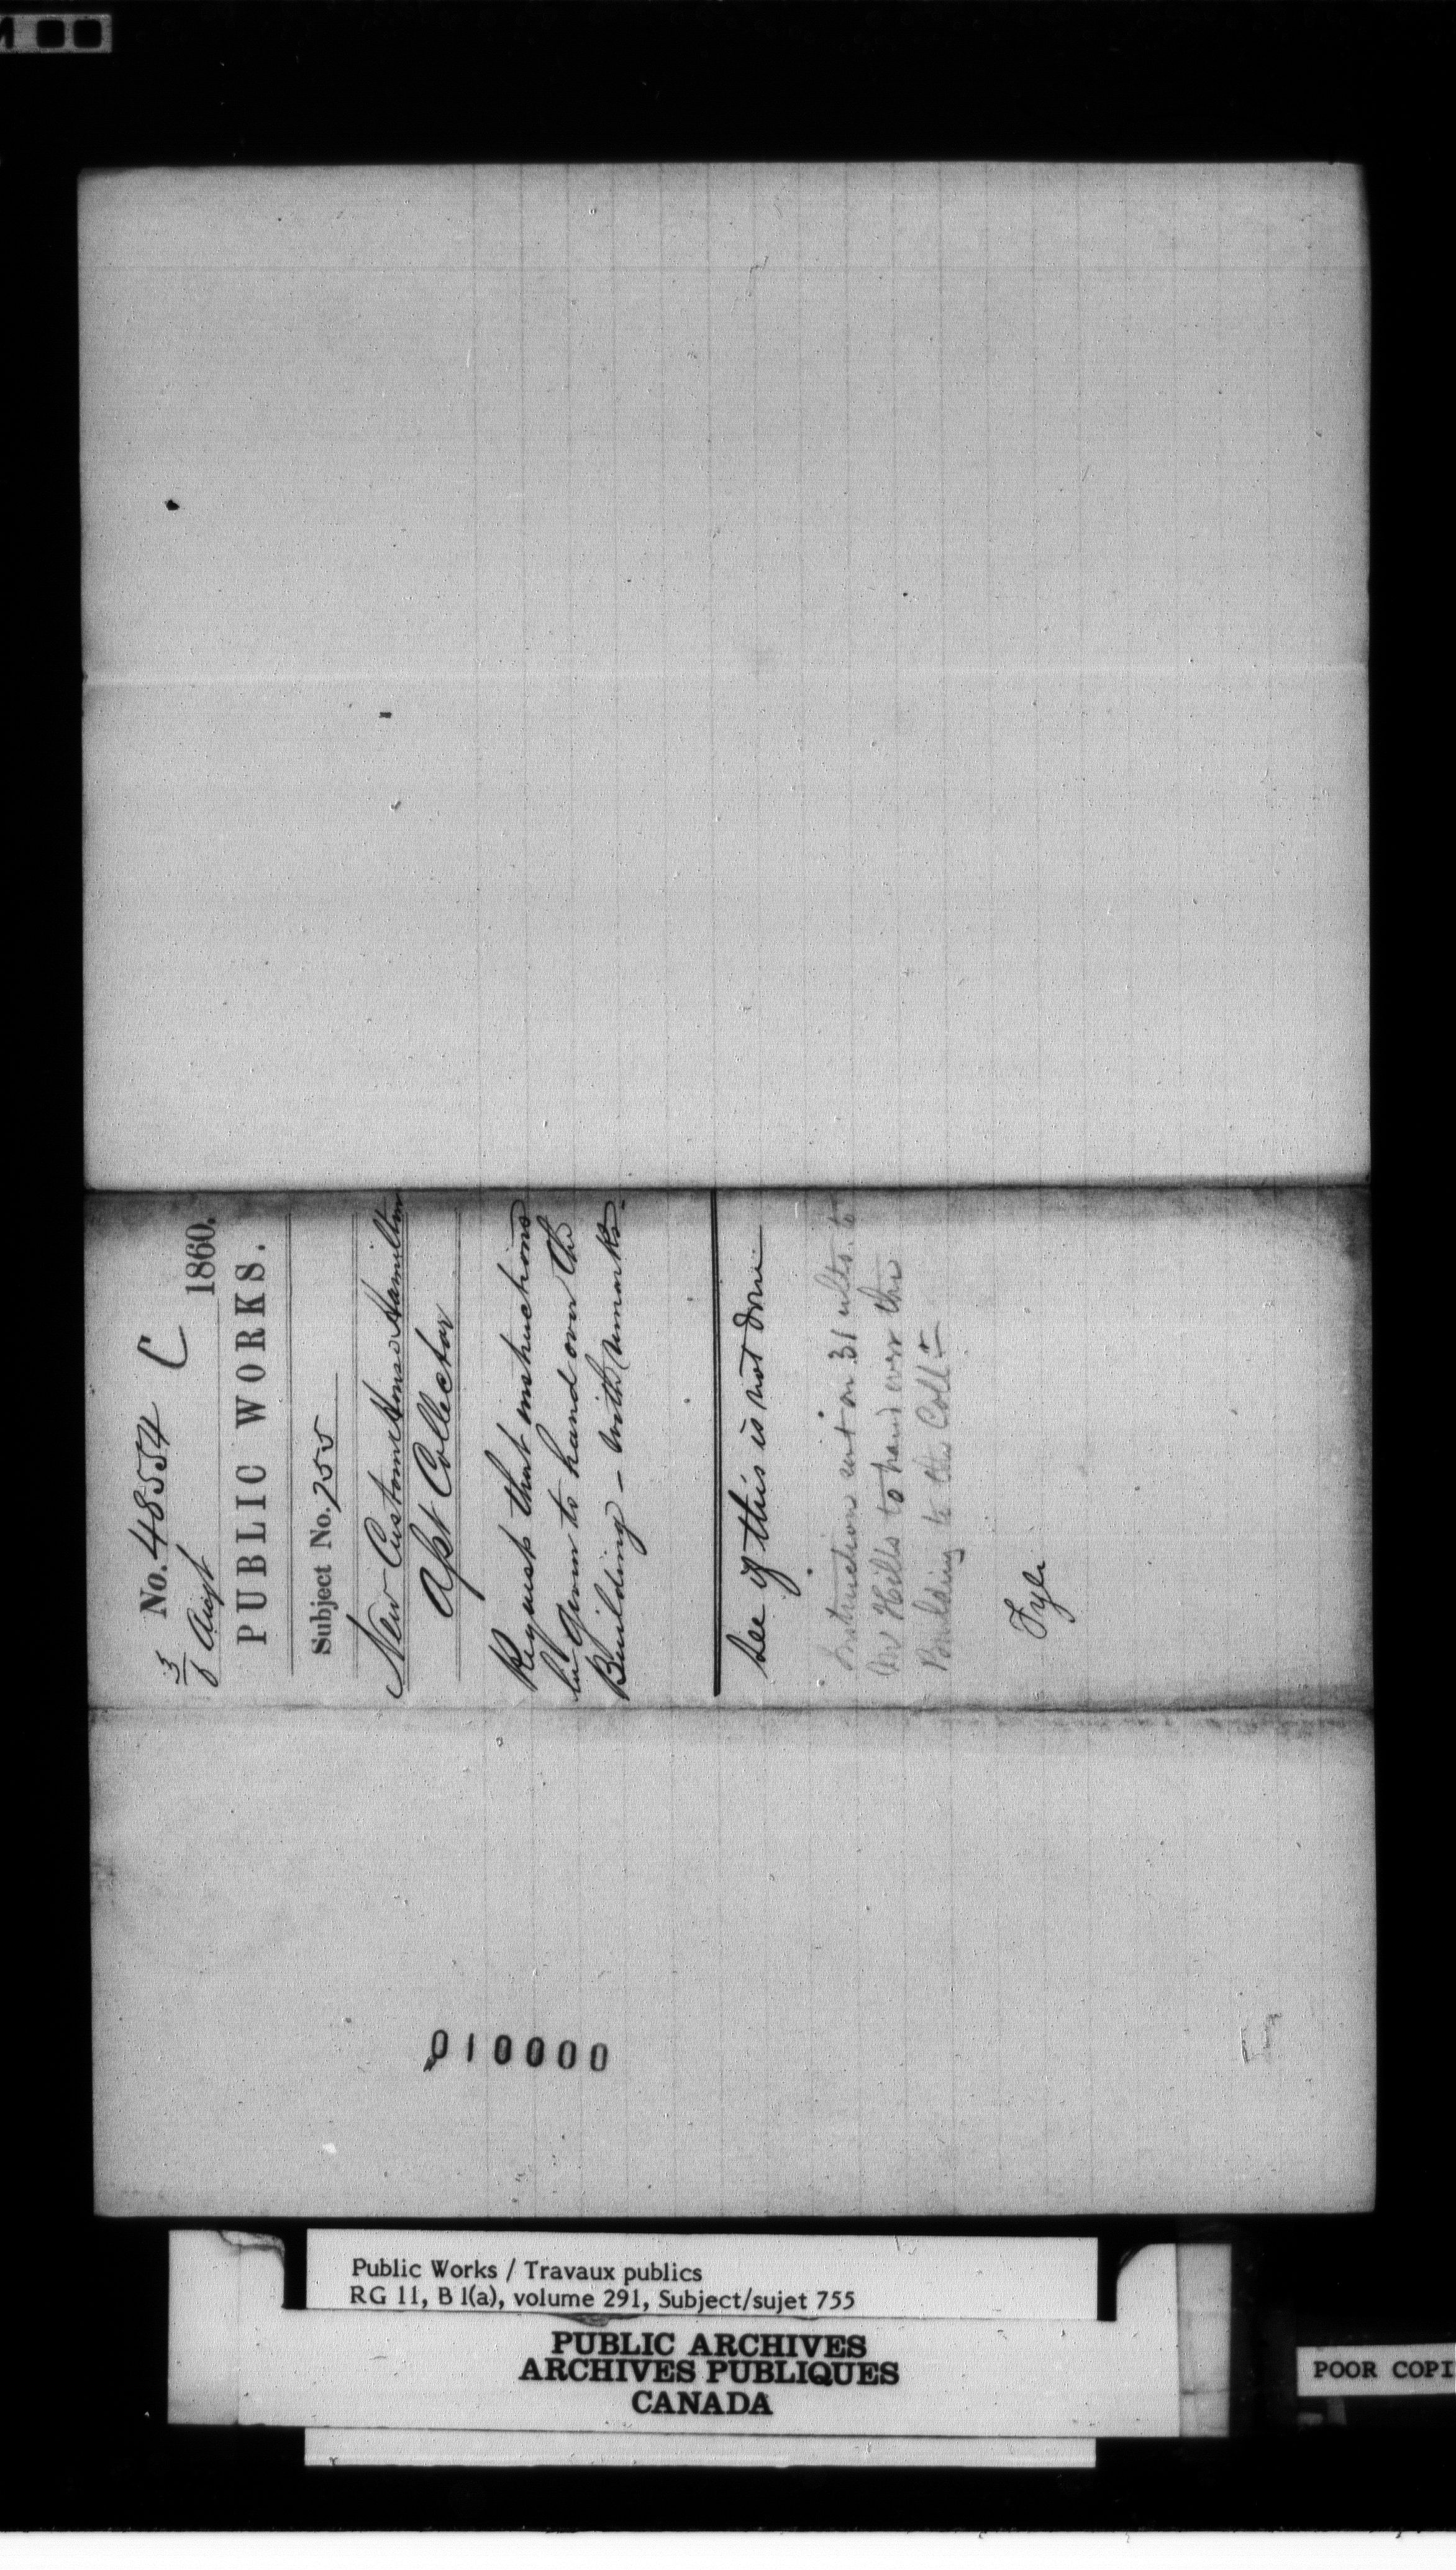 No. 48554 C
3/8 Augt 1860.
PUBLIC WORKS.
Subject No. 755
New Custom House Hamilton
Asst Collector
Request that instructions
be given to hand over the
Building – with remarks –
See if this is not done
Instructions sent on 31 ulto. to
Mr Hills to hand over the
Building to the Collr
Fyle
010000
Public Works / Travaux publics
RG 11, B 1(a), volume 291, Subject/sujet 755
PUBLIC ARCHIVES
ARCHIVES PUBLIQUES
CANADA
POOR COPI